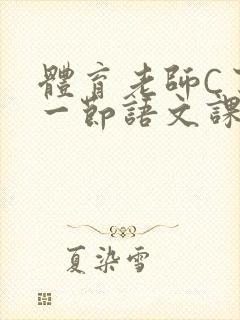 體育老師C
一節語文課
夏染雪